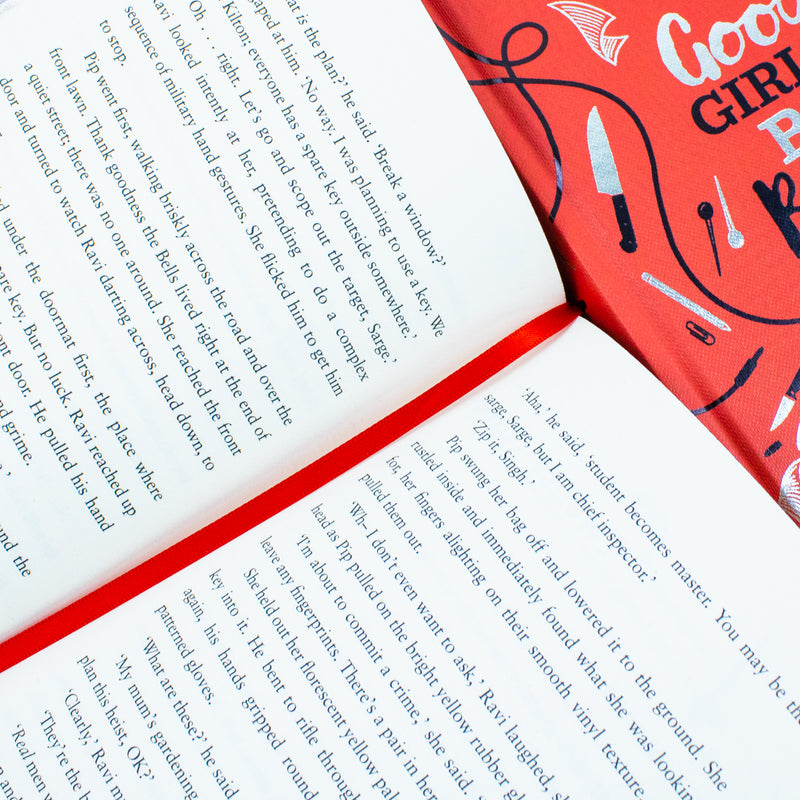 at is the plan?' he said. 'Break a window?'
gaped at him. 'No way. I was planning to use a key. We
Kilton; everyone has a spare key outside somewhere.'
Oh . . . right. Let's go and scope out the target, Sarge.'
Ravi looked intently at her, pretending to do a complex
sequence of military hand gestures. She flicked him to get him
to stop.
Pip went first, walking briskly across the road and over the
front lawn. Thank goodness the Bells lived right at the end of
a quiet street; there was no one around. She reached the front
door and turned to watch Ravi darting across, head down, to
under the doormat first, the place where
key. But no luck. Ravi reached up
front door. He pulled his hand
grime.
the
'Aha,' he said, 'student becomes master. You may be the
sarge, Sarge, but I am chief inspector.'
'Zip it, Singh.'
Pip swung her bag off and lowered it to the ground. She
rustled inside and immediately found what she was looking
for, her fingers alighting on their smooth vinyl texture.
pulled them out.
'Wh– I don't even want to ask,' Ravi laughed,
head as Pip pulled on the bright yellow rubber
'I'm about to commit a crime,' she said.
leave any fingerprints. There's a pair in her
She held out her florescent yellow
key into it. He bent to rifle through
again, his hands gripped round
patterned gloves.
'What are these?' he said
'My mum's gardening
plan this heist, OK?'
'Clearly,' Ravi
'They're the
'Real men
GOOD
GIRL